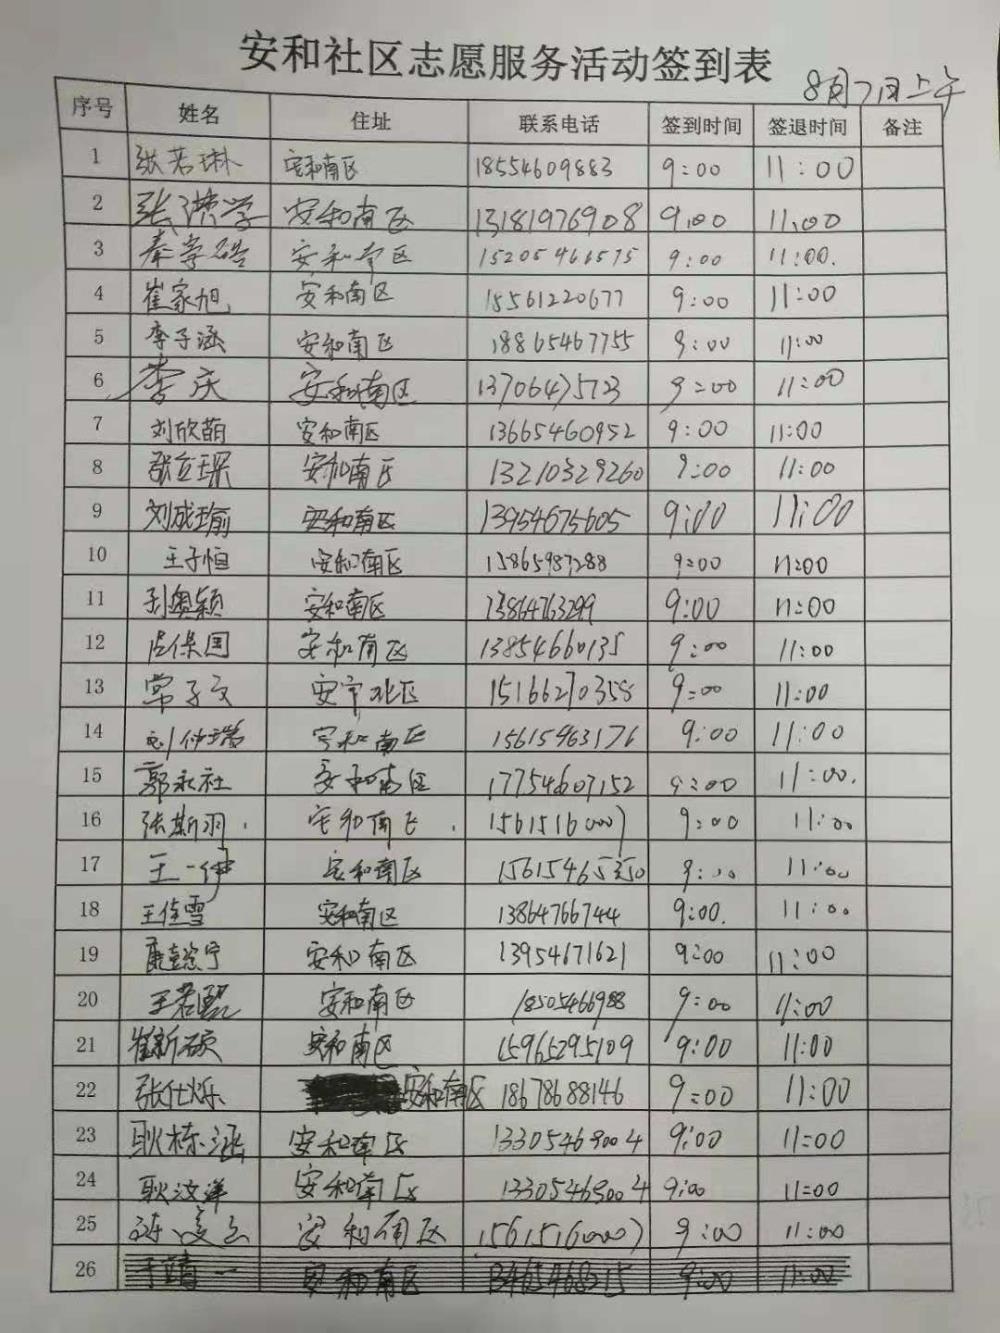 安和社区志愿服务活动签到表
8月7日上午
序号 姓名 住址 联系电话 签到时间 签退时间 备注
1 张若琳 安和南区 18554609883 9:00 11:00
2 张潆学 安和南区 13181976908 9:00 11:00
3 秦字皓 安和南区 15205466575 9:00 11:00.
4 崔家旭 安和南区 18561220677 9:00 11:00
5 李子涵 安和南区 18865467755 9:00 11:00
6 李庆 安和南区 13706475723 9:00 11:00
7 刘欣萌 安和南区 13665460952 9:00 11:00
8 张立琛 安和南区 13210329260 9:00 11:00
9 刘成瑜 安和南区 13954675605 9:00 11:00
10 王子恒 安和南区 15865987288 9:00 11:00
11 刘奥颖 安和南区 13864763299 9:00 11:00
12 保国 安和南区 13854660135 9:00 11:00
13 常子文 安宁北区 15166270358 9:00 11:00
14 刘仲瑞 安和南区 15615463176 9:00 11:00
15 郭永社 安和南区 17754607152 9:00 11:00.
16 张斯羽. 安和南区. 15615160007 9:00 11:00
17 王一伊 安和南区 15615465350 9:00 11:00
18 王佳雪 安和南区 13864766744 9:00. 11:00
19 康懿宁 安和南区 13954671621 9:00 11:00
20 王若熙 安和南区 18505466988 9:00 11:00
21 崔新硕 安和南区 15965295109 9:00 11:00
22 张仕烁 安和南区 18678688146 9:00 11:00
23 耿栋涵 安和南区 13305469004 9:00 11:00
24 耿汶洋 安和南区 13305469004 9:00 11:00
25 安和南区 15615160007 9:00 11:00
26 于靖一 安和南区 13465468315 9:00 11:00